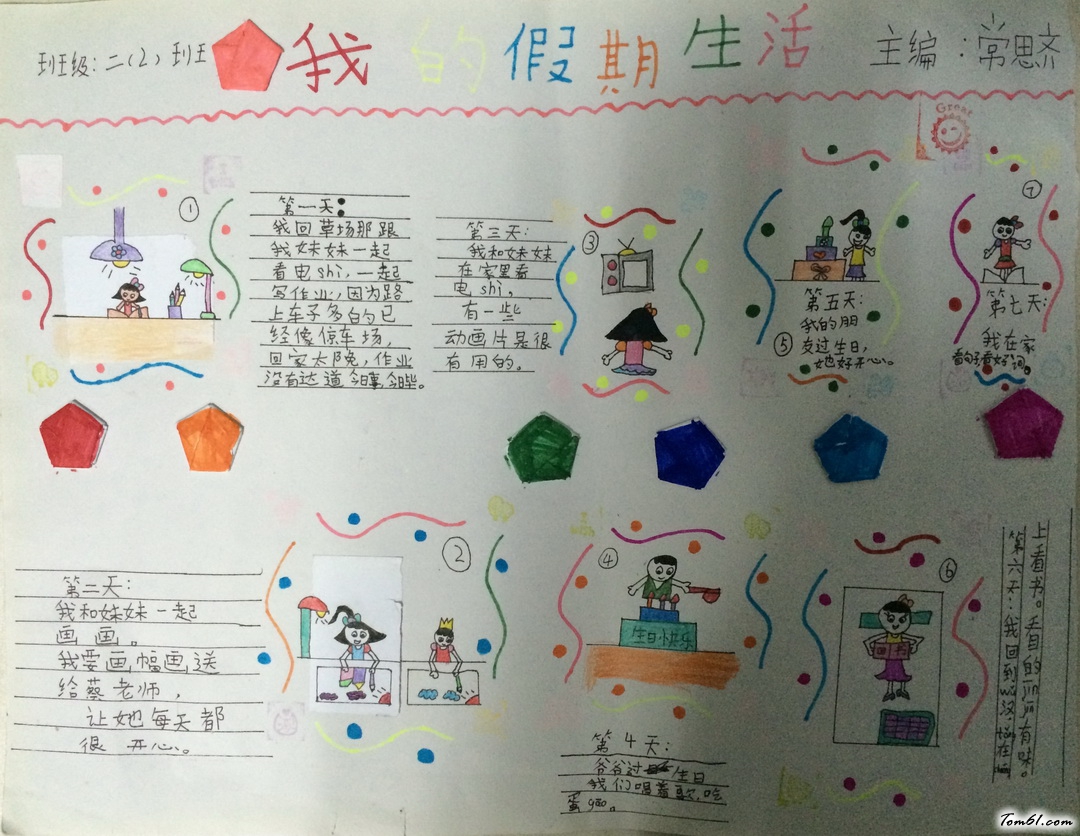 班级:二(2)班
我的假期生活
主编:常思齐
Great
①
第一天:
我回草场那跟
我妹妹一起
看电shì,一起
写作业,因为路
上车子多的已
经像停车场,
回家太晚,作业
没有达道今日事,今日毕。
第三天:
我和妹妹
在家里看
电shì。
有一些
动画片是很
有用的。
③
第五天:
我的朋
友过生日,
她好开心。
⑤
⑦
第七天:
我在家
看句子看好词。
第二天:
我和妹妹一起
画画。
我要画幅画送
给蔡老师,
让她每天都
很开心。
②
④
生日快乐
第4天:
爷爷过生日
我们唱着歌,吃
蛋gāo。
⑥
第六天:我回到
上看书。
有味。
Tom61.com